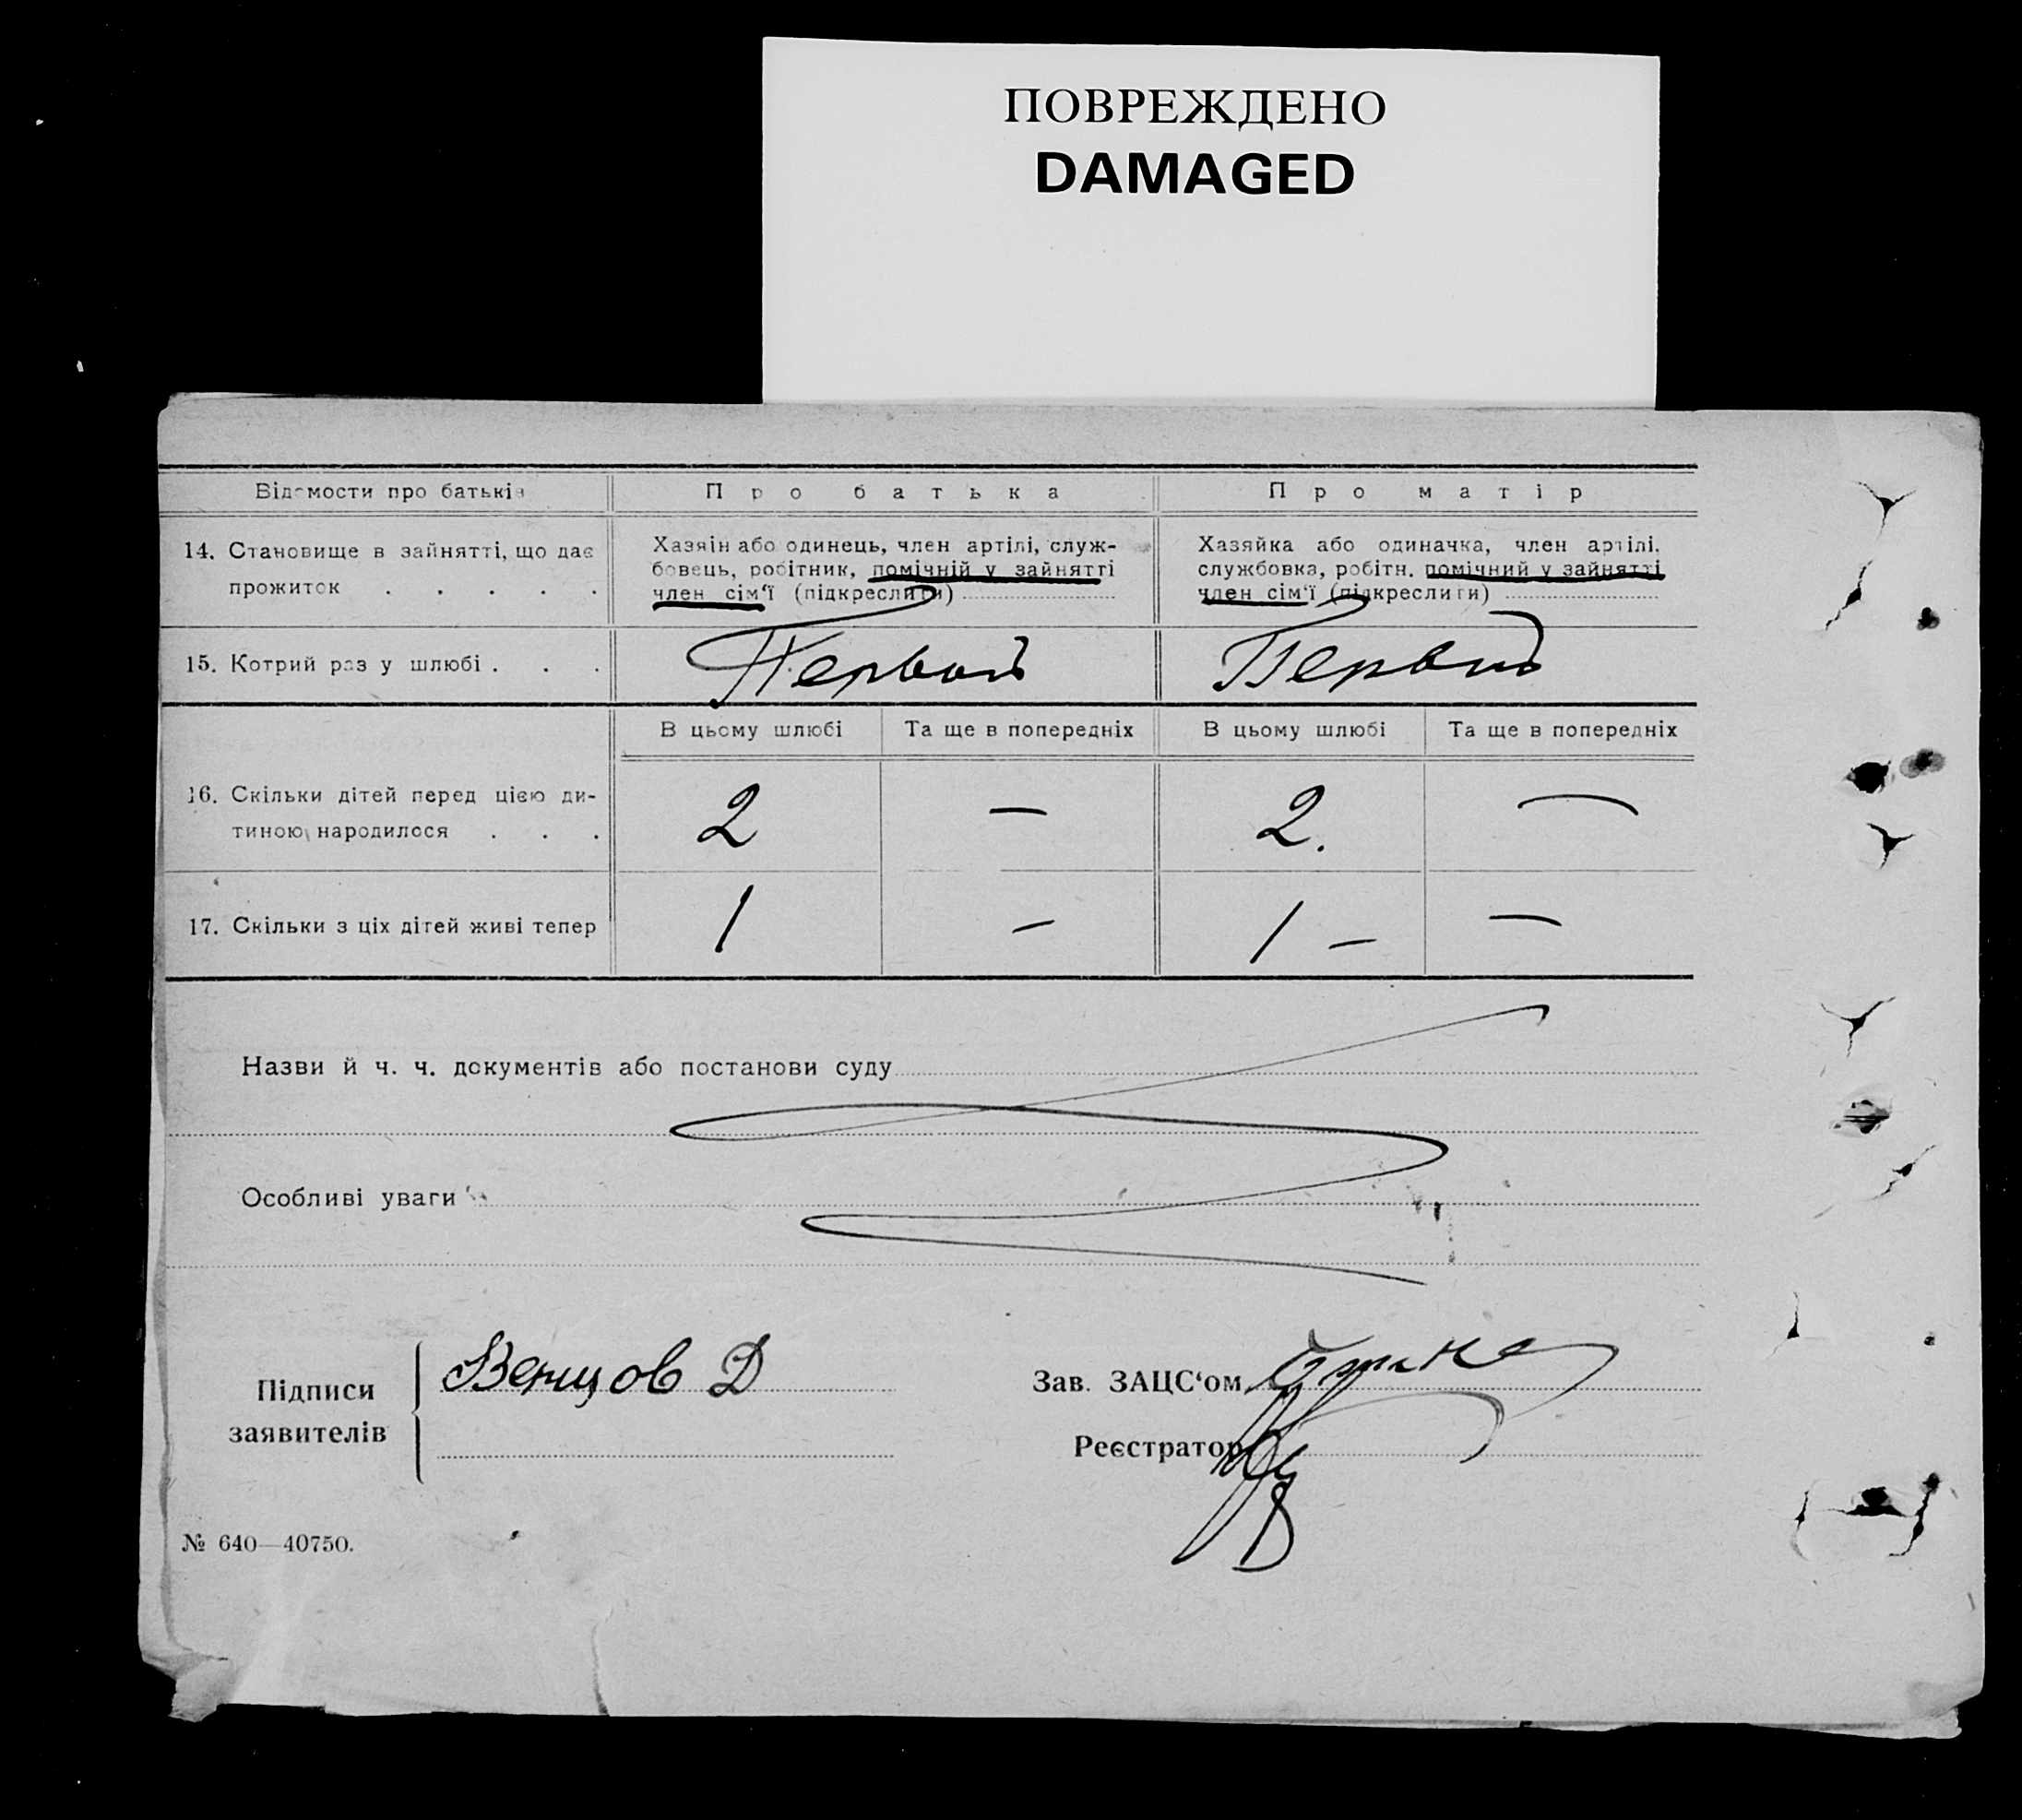 ПОВРЕЖДЕНО
DAMAGED
Відомости про батьків
Про батька
Про матір
14. Становище в зайнятті, що дає
прожиток . . . . .
Хазяін або одинець, член артілі, служ-
бовець, робітник, помічній у зайнятті
член сім‘ї (підкреслити)
Хазяйка або одиначка, член артілі,
службовка, робітн. помічний у зайнятті
член сім‘ї (підкреслити)
15. Котрий раз у шлюбі . . .
Первый
Первый
В цьому шлюбі
Та ще в попередніх
В цьому шлюбі
Та ще в попередніх
16. Скільки дітей перед цією ди-
тиною народилося . . .
2
—
2.
—
17. Скільки з ціх дітей живі тепер
1
—
1 —
—
Назви й ч. ч. документів або постанови суду
Особливі уваги
Підписи
заявителів
Венцов Д
Зав. ЗАЦС‘ом
Реєстратор
№ 640—40750.